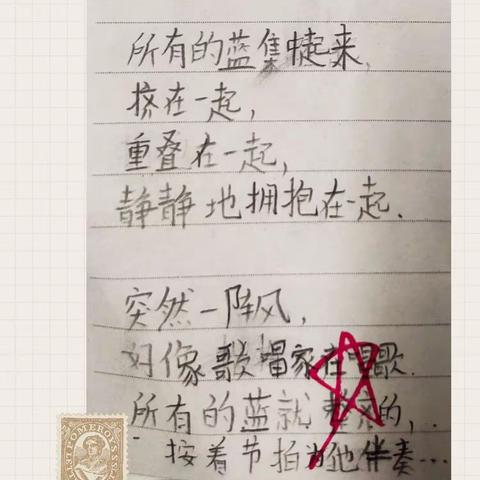 所有的蓝集中起来,
挤在一起,
重叠在一起,
静静地拥抱在一起.
突然一阵风,
好像歌唱家在唱歌.
所有的蓝就整齐的,..
按着节拍为他伴奏...
POMEROY'S